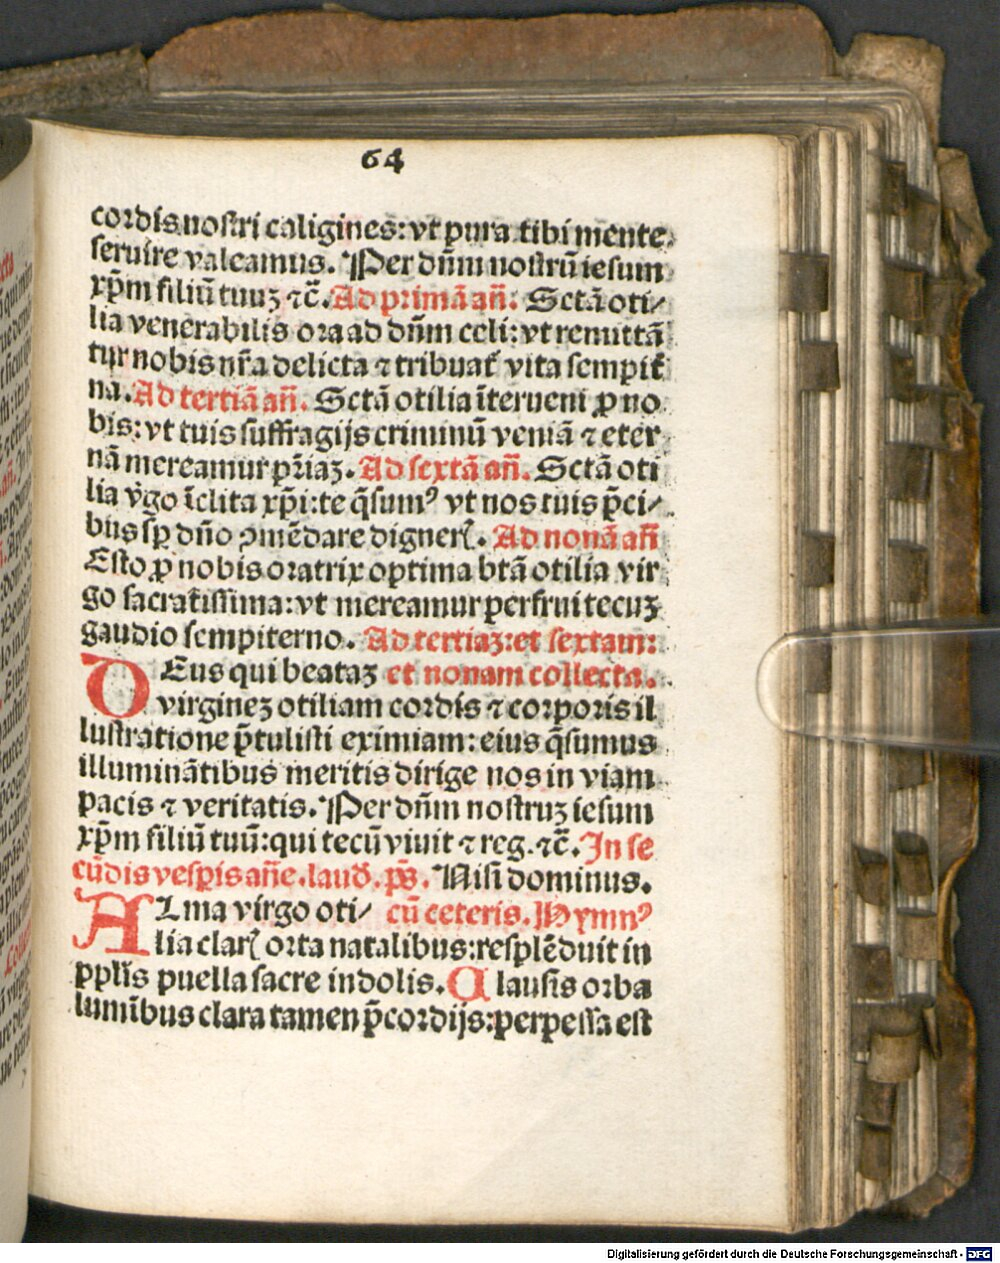 64
cordis nostri caligines: vt pura tibi mente
seruire valeamus. Per dn̄m nostrū iesum
xp̄m filiū tuuꝫ ⁊c̄. Ad primā an̄: Sctā oti/
lia venerabilis ora ad dn̄m celi: vt remittā
tur nobis nr̄a delicta ⁊ tribuat̄ vita sempit̄
na. Ad tertiā an̄. Sctā otilia īterueni ꝓ no
bis: vt tuis suffragijs criminū veniā ⁊ eter
nā mereamur pr̄iaꝫ. Ad sextā an̄. Sctā oti
lia v̄go īclita xp̄i: te q̄sumꝰ vt nos tuis p̄ci/
bus sꝑ dn̄o ꝯmēdare digner̄. Ad nonā an̄
Esto ꝓ nobis oratrix optima btā otilia vir
go sacrat̄issima: vt mereamur perfrui tecuꝫ
gaudio sempiterno. Ad tertiaꝫ: et sextam:
DEus qui beataꝫ et nonam collecta.
virgineꝫ otiliam cordis ⁊ corporis il
lustratione p̄tulisti eximiam: eius q̄sumus
illuminātibus meritis dirige nos in viam
pacis ⁊ veritatis. Per dn̄m nostruꝫ iesum
xp̄m filiū tuū: qui tecū viuit ⁊ reg. ⁊c̄. In se
cūdis vesꝑis an̄e. laud̄. ps̄. Nisi dominus.
ALma virgo oti/ cū ceteris. Hymnꝰ
lia clar̄ orta natalibus: resplēduit in
pplīs puella sacre indolis. Clausis orba
lumībus clara tamen p̄cordijs: perpessa est
Digitalisierung gefördert durch die Deutsche Forschungsgemeinschaft - DFG